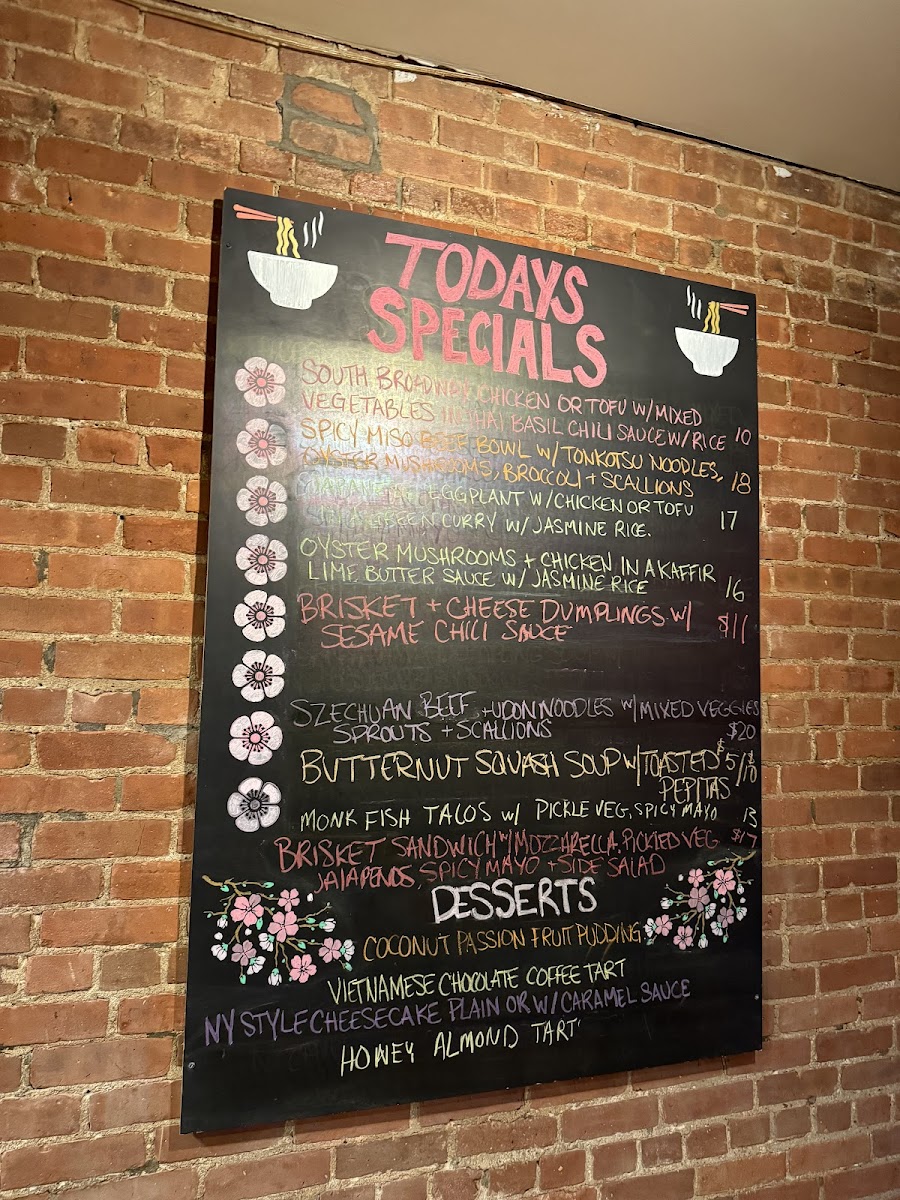 TODAYS
SPECIALS
SOUTH BROADWAY CHICKEN OR TOFU W/ MIXED
VEGETABLES IN THAI BASIL CHILI SAUCE W/ RICE 10
SPICY MISO BEEF BOWL W/ TONKOTSU NOODLES,
OYSTER MUSHROOMS, BROCCOLI + SCALLIONS 18
EGGPLANT W/ CHICKEN OR TOFU
GREEN CURRY W/ JASMINE RICE. 17
OYSTER MUSHROOMS + CHICKEN IN A KAFFIR
LIME BUTTER SAUCE W/ JASMINE RICE 16
BRISKET + CHEESE DUMPLINGS W/ $11
SESAME CHILI SAUCE
SZECHUAN BEEF + UDON NOODLES W/ MIXED VEGGIES
SPROUTS + SCALLIONS $20
BUTTERNUT SQUASH SOUP W/ TOASTED $5/$10
PEPITAS
MONK FISH TACOS W/ PICKLE VEG, SPICY MAYO 13
BRISKET SANDWICH W/ MOZZARELLA, PICKLED VEG $17
JALAPENOS, SPICY MAYO + SIDE SALAD
DESSERTS
COCONUT PASSION FRUIT PUDDING
VIETNAMESE CHOCOLATE COFFEE TART
NY STYLE CHEESECAKE PLAIN OR W/ CARAMEL SAUCE
HONEY ALMOND TART